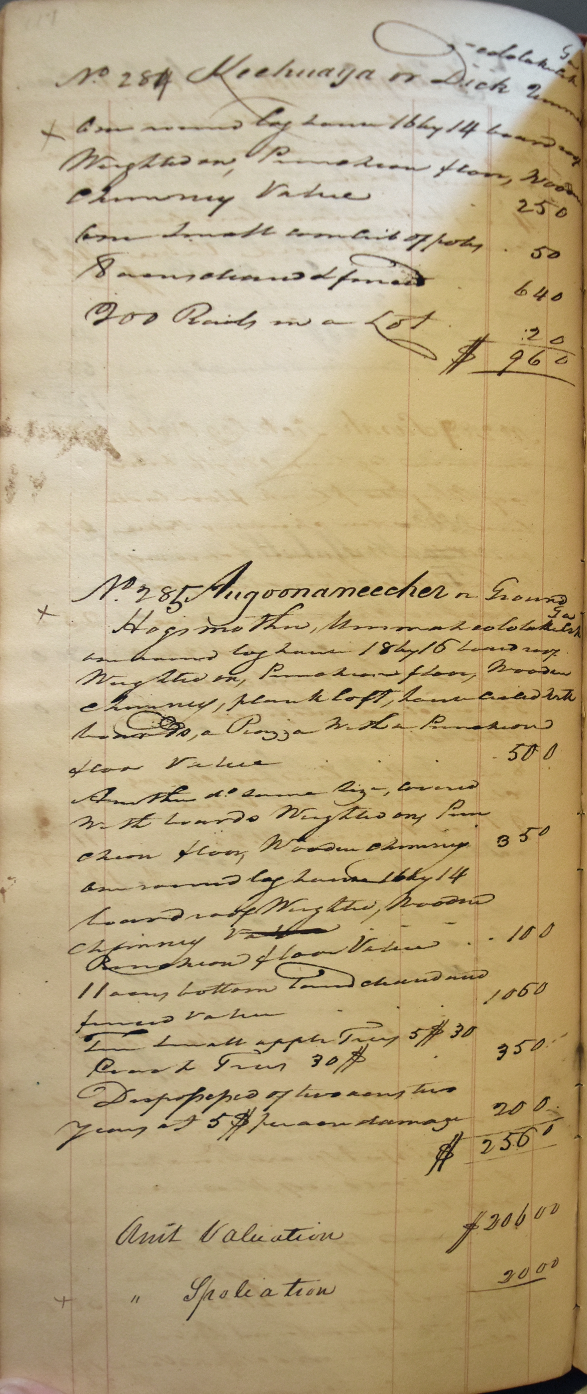 No. 284 Keehuaya or Dick
One round log house 16 by 14 board roof
Weighted on, Puncheon floor, Wooden
Chimney Value 250
One Small corn Crib of poles 50
8 acres cleared & fenced 640
200 Rails in a Lot 20
$ 960
No. 285 Augoonaneecher or Ground
Hogs mother, Ga
one round log house 18 by 16 board roof
Weighted on, Puncheon floor, Wooden
Chimney, plank loft, house ceiled with
boards, a Piazza With a Puncheon
floor Value 500
Another do same size, covered
With boards Weighted on, Pun
cheon floor, Wooden chimney 350
One round log house 16 by 14
board roof Weighted, Wooden
Chimney Value
Puncheon floor Value 100
11 acres bottom Land cleared and
fenced Value 1060
Ten Small apple Trees 5$ 30
Peach Trees 30$ 350
Dispossessed of two acres two
years at 5$ per acre damage 200
$ 2560
Amt Valuation $206000
" Spoliation 2000